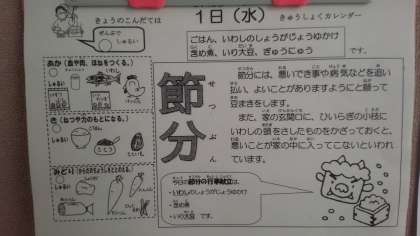 きょうのこんだては
1日（水）
きゅうしょくカレンダー
ぜんぶで
しゅるい
ごはん、いわしのしょうがじょうゆかけ
含め煮、いり大豆、ぎゅうにゅう
です。
あか（血や肉、ほねをつくる。）
しゅるい
き（ねつや力のもとになる。）
しゅるい
ごはん
さとう
みどり（からだのちょうしをととのえる。）
しゅるい
節分
せつぶん
節分には、悪いでき事や病気などを追い
払い、よいことがありますようにと願って
豆まきをします。
また、家の玄関口に、ひいらぎの小枝に
いわしの頭をさしたものをかざっておくと、
悪いことが家の中に入ってこないといわれ
ています。
今日の節分の行事献立は、
・いわしのしょうがじょうゆかけ
・含め煮
・いり大豆 です。